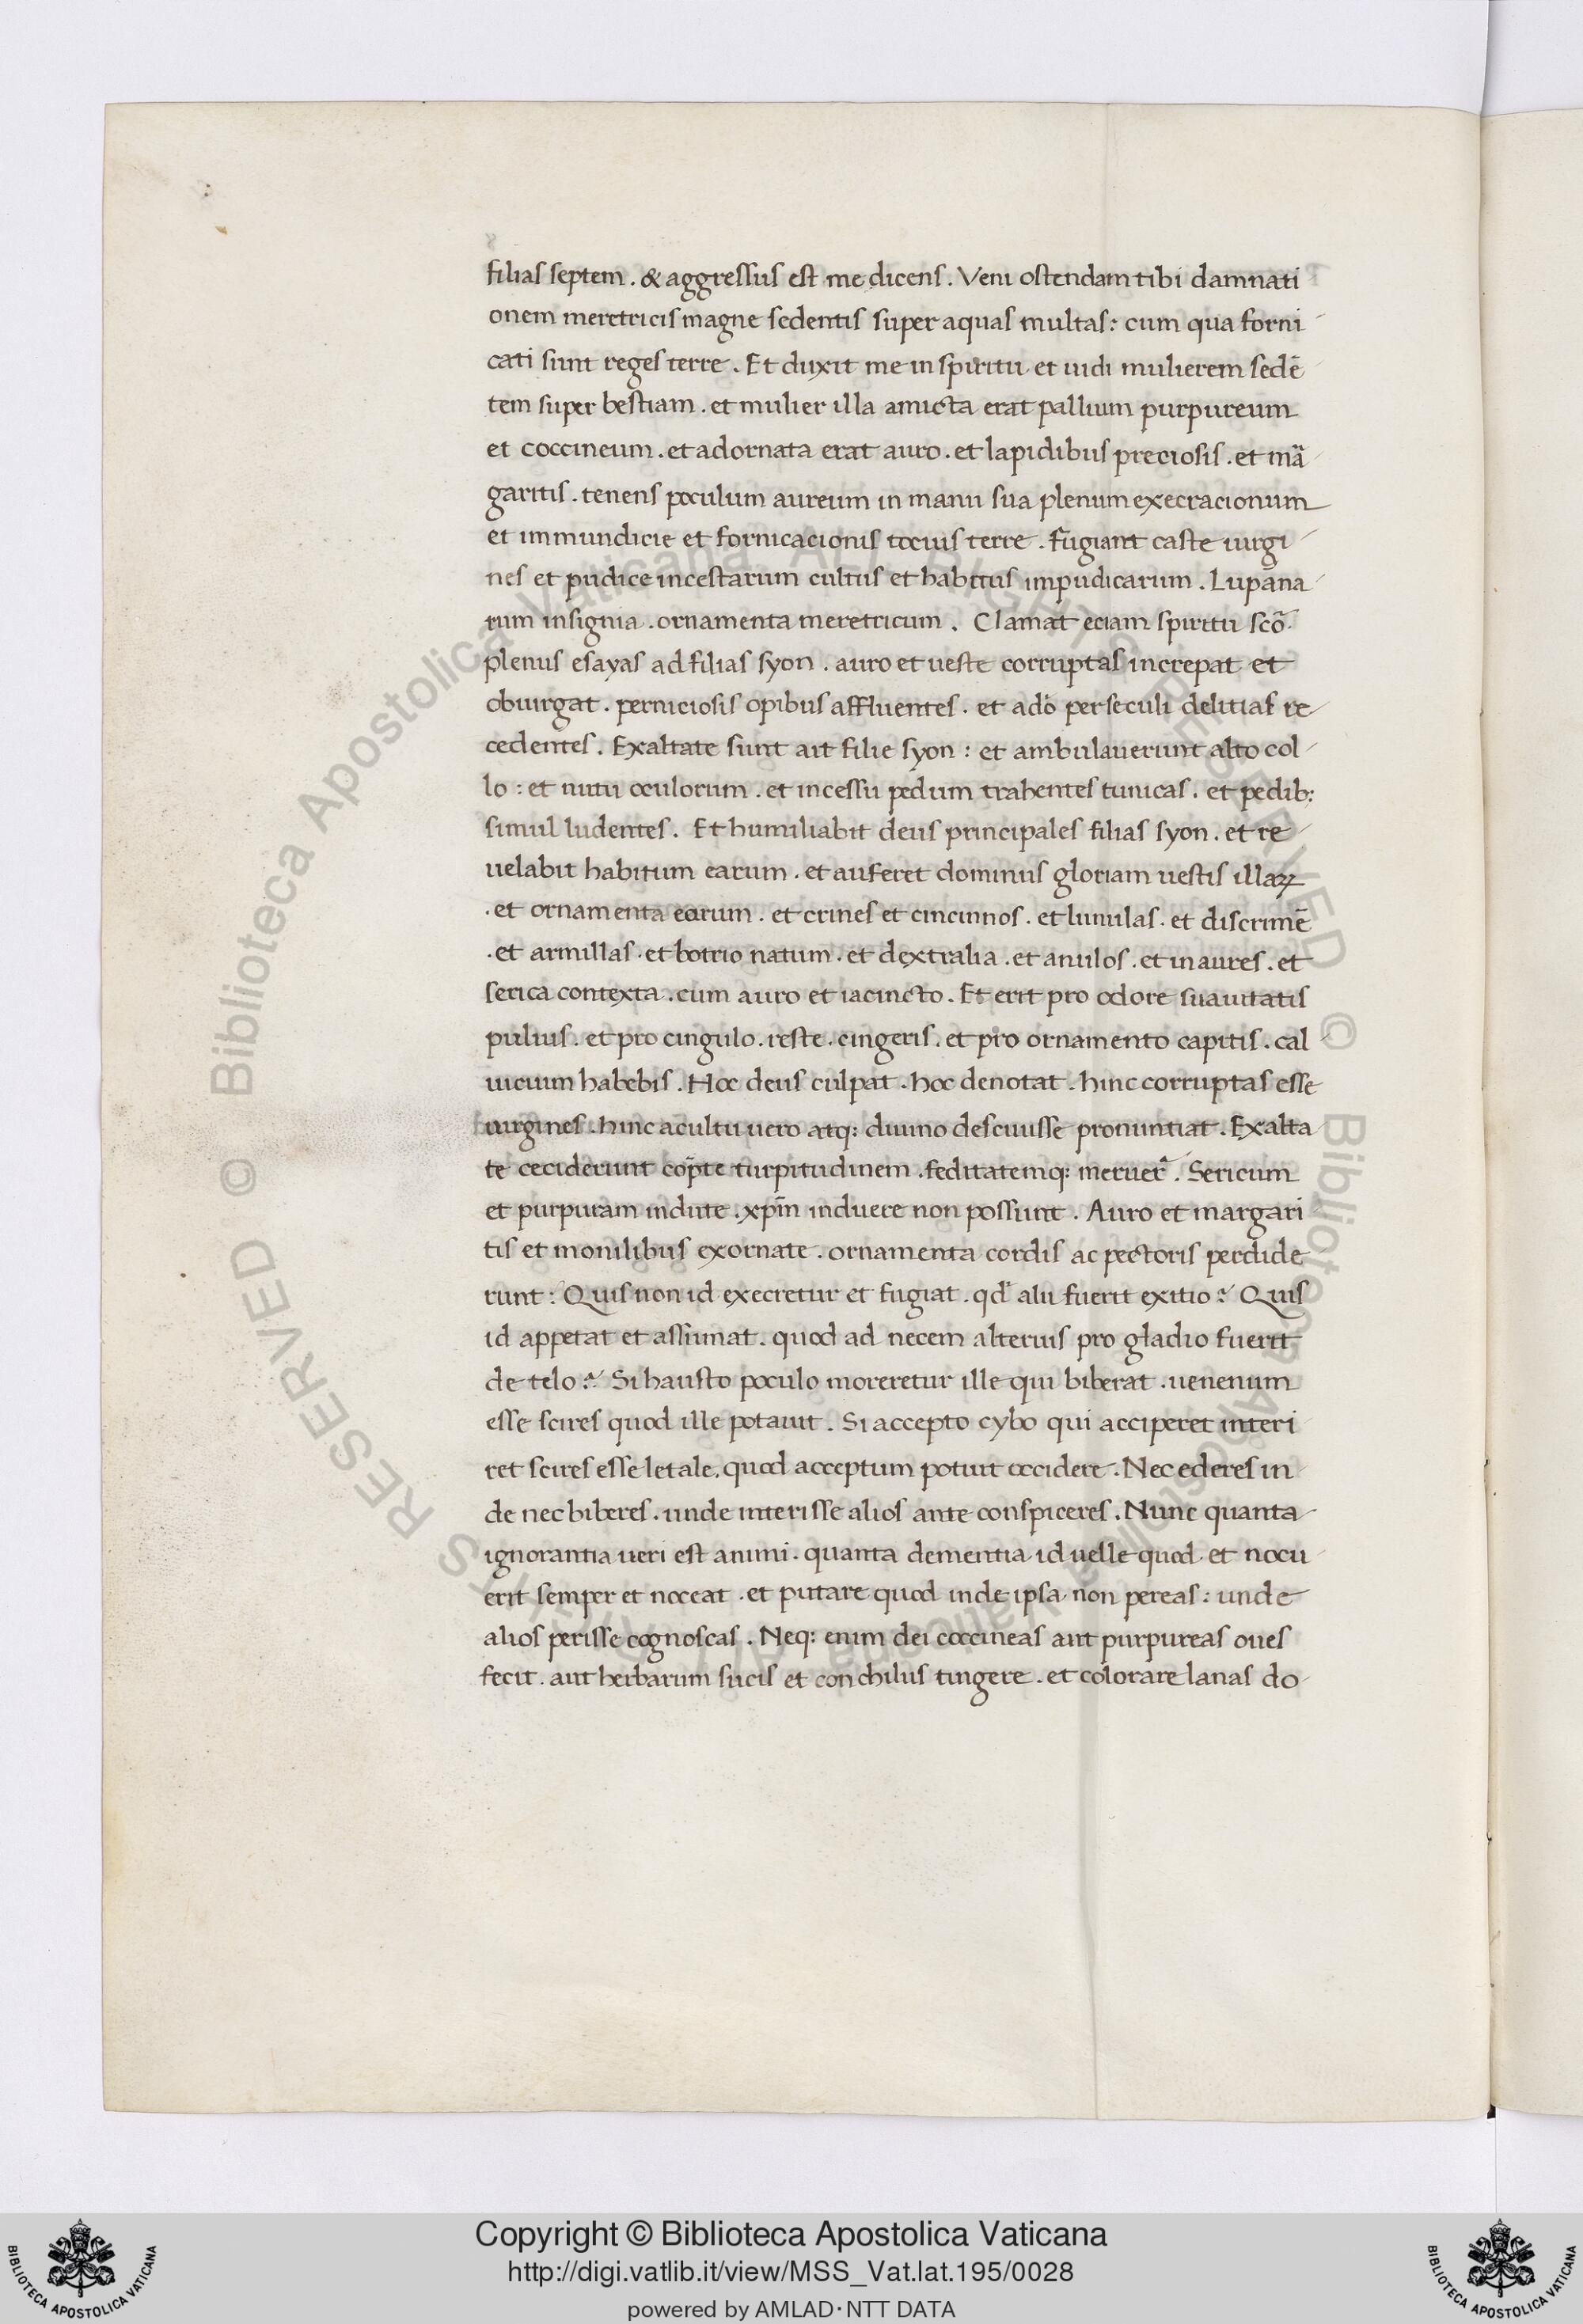 filias septem . & aggressus est me dicens . Veni ostendam tibi damnati
onem meretricis magne sedentis super aquas multas : cum qua forni
cati sunt reges terre . Et duxit me in spiritu et uidi mulierem sedē
tem super bestiam . et mulier illa amicta erat pallium purpureum
et coccineum . et adornata erat auro . et lapidibus preciosis . et mā
garitis . tenens poculum aureum in manu sua plenum execracionum
et immundicie et fornicacionis tocius terre . Fugiant caste uirgi
nes et pudice incestarum cultus et habitus impudicarum . Lupana
rum insignia . ornamenta meretricum . Clamat eciam spiritu scō
plenus esayas ad filias syon . auro et ueste corruptas increpat et
obiurgat . perniciosis opibus affluentes . et a dō per seculi delitias re
cedentes . Exaltate sunt ait filie syon : et ambulauerunt alto col
lo : et nutu oculorum . et incessu pedum trahentes tunicas . et pedib:
simul ludentes . Et humiliabit deus principales filias syon . et re
uelabit habitum earum . et auferet dominus gloriam uestis illaꝝ
. et ornamenta earum . et crines et cincinnos . et lunulas . et discrimē
. et armillas . et botrio natum . et dextralia . et anulos . et in aures . et
serica contexta . cum auro et iacincto . Et erit pro odore suauitatis
puluis . et pro cingulo . reste . cingeris . et pro ornamento capitis . cal
uicium habebis . Hoc deus culpat . hoc denotat . hinc corruptas esse
uirgines . hinc a cultu uero atq: diuino desciuisse pronuntiat . Exalta
te ceciderunt cop̄te turpitudinem . feditatemq: meruer̄ . Sericum
et purpuram indute . xp̄m induere non possunt . Auro et margari
tis et monilibus exornate . ornamenta cordis ac pectoris perdide
runt : Quis non id execretur et fugiat . qd' alii fuerit exitio ? Quis
id appetat et assumat . quod ad necem alterius pro gladio fuerit
de telo ? Si hausto poculo moreretur ille qui biberat . uenenum
esse scires quod ille potauit . Si accepto cybo qui acciperet interi
ret scires esse letale . quod acceptum potuit occidere . Nec ederes in
de nec biberes . unde interisse alios ante conspiceres . Nunc quanta
ignorantia ueri est animi . quanta dementia id uelle quod et nocu
erit semper et noceat . et putare quod inde ipsa non pereas : unde
alios perisse cognoscas . Neq: enim dei coccineas aut purpureas oues
fecit . aut herbarum sucis et conchilus tingere . et colorare lanas do
© Biblioteca Apostolica Vaticana ALL RIGHTS RESERVED © Biblioteca Apostolica Vaticana ALL RIGHTS RESERVED
Copyright © Biblioteca Apostolica Vaticana
http://digi.vatlib.it/view/MSS_Vat.lat.195/0028
powered by AMLAD·NTT DATA
BIBLIOTECA APOSTOLICA VATICANA
BIBLIOTECA APOSTOLICA VATICANA